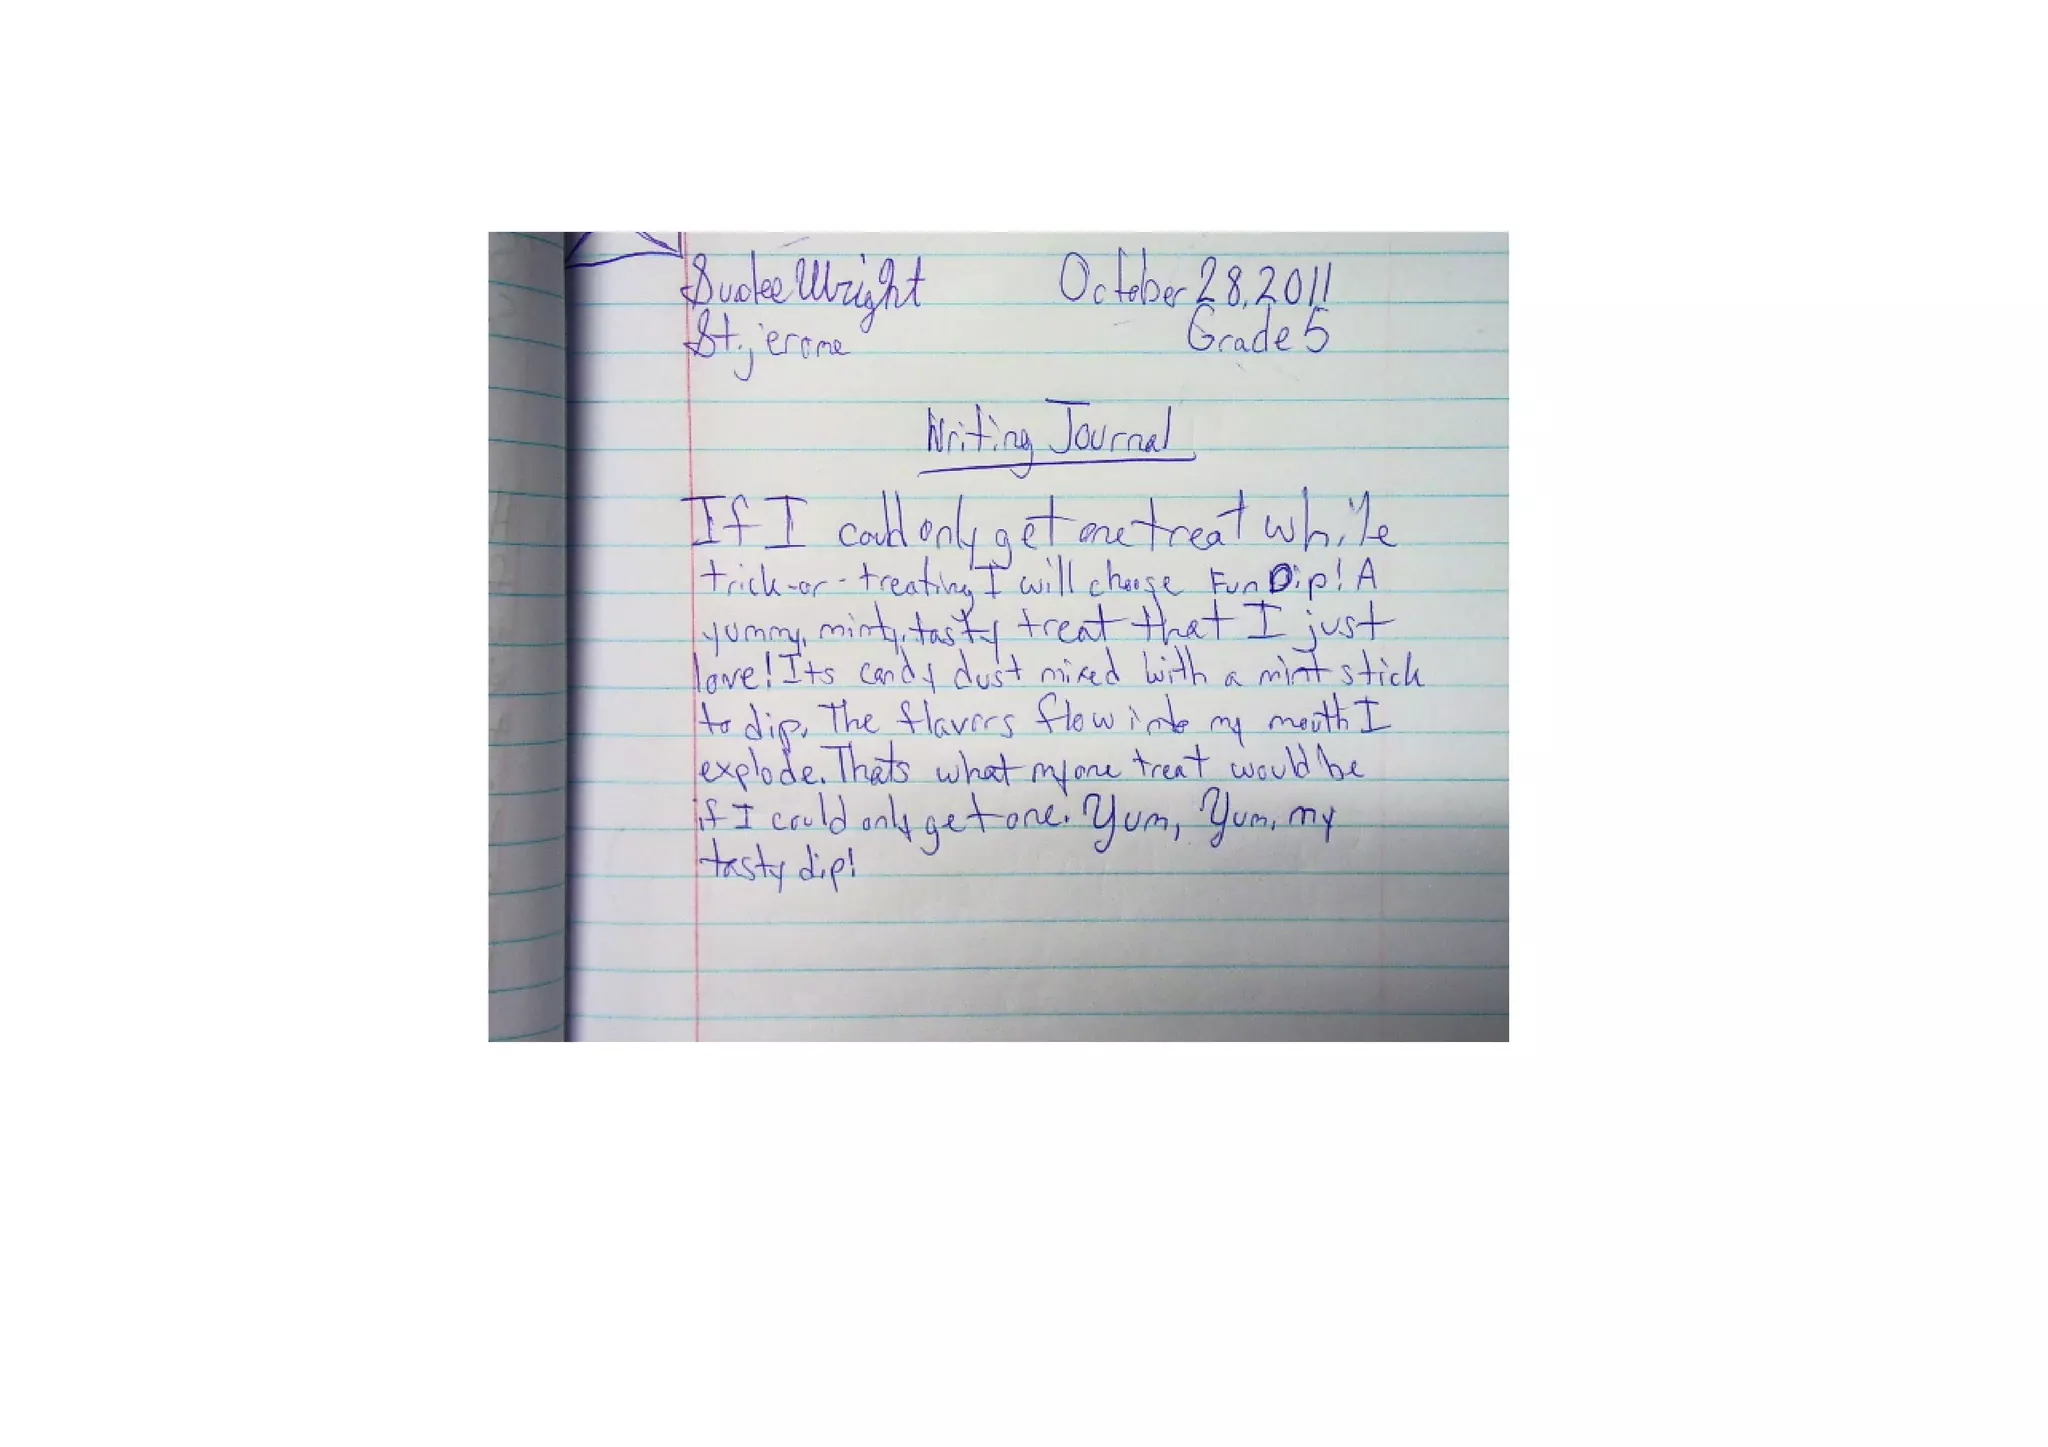 Wright October 28, 2011
St. jerome Grade 5
Writing Journal
If I could only get one treat while
trick-or-treating I will choose Fun Dip! A
yummy, minty, tasty treat that I just
love! Its candy dust mixed with a mint stick
to dip. The flavors flow into my mouth I
explode. Thats what my one treat would be
if I could only get one. Yum, Yum, my
tasty dip!